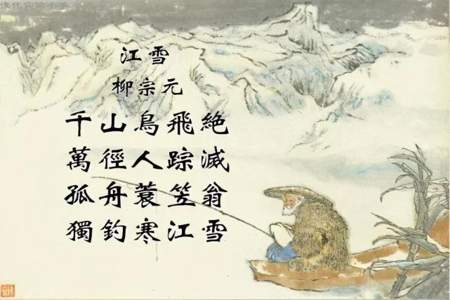 江雪
柳宗元
千山鳥飛絶
萬徑人踪滅
孤舟蓑笠翁
獨釣寒江雪